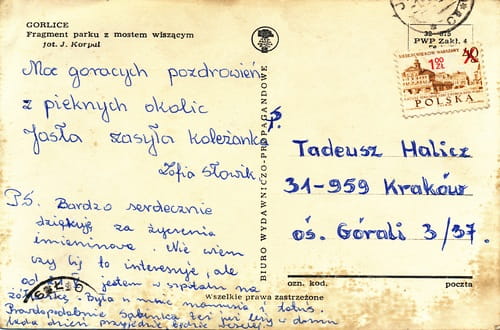 GORLICE
Fragment parku z mostem wiszącym
fot. J. Korpal
Moc gorących pozdrowień
z pięknych okolic
Jasła zasyła koleżanka
Zofia Słowik
PS. Bardzo serdecznie
dziękuję za życzenia
imieninowe. Nie wiem
czy Cię to interesuje, ale
od jestem w szpitalu na
Była u mnie mamusia i tatuś.
Prawdopodobnie też już leży w domu
BIURO WYDAWNICZO-PROPAGANDOWE
32-815
PWP Zakł. 4
1,00
ZŁ
40
POLSKA
P.
Tadeusz Halicz
31-959 Kraków
oś. Górali 3/37.
ozn. kod.
poczta
wszelkie prawa zastrzeżone